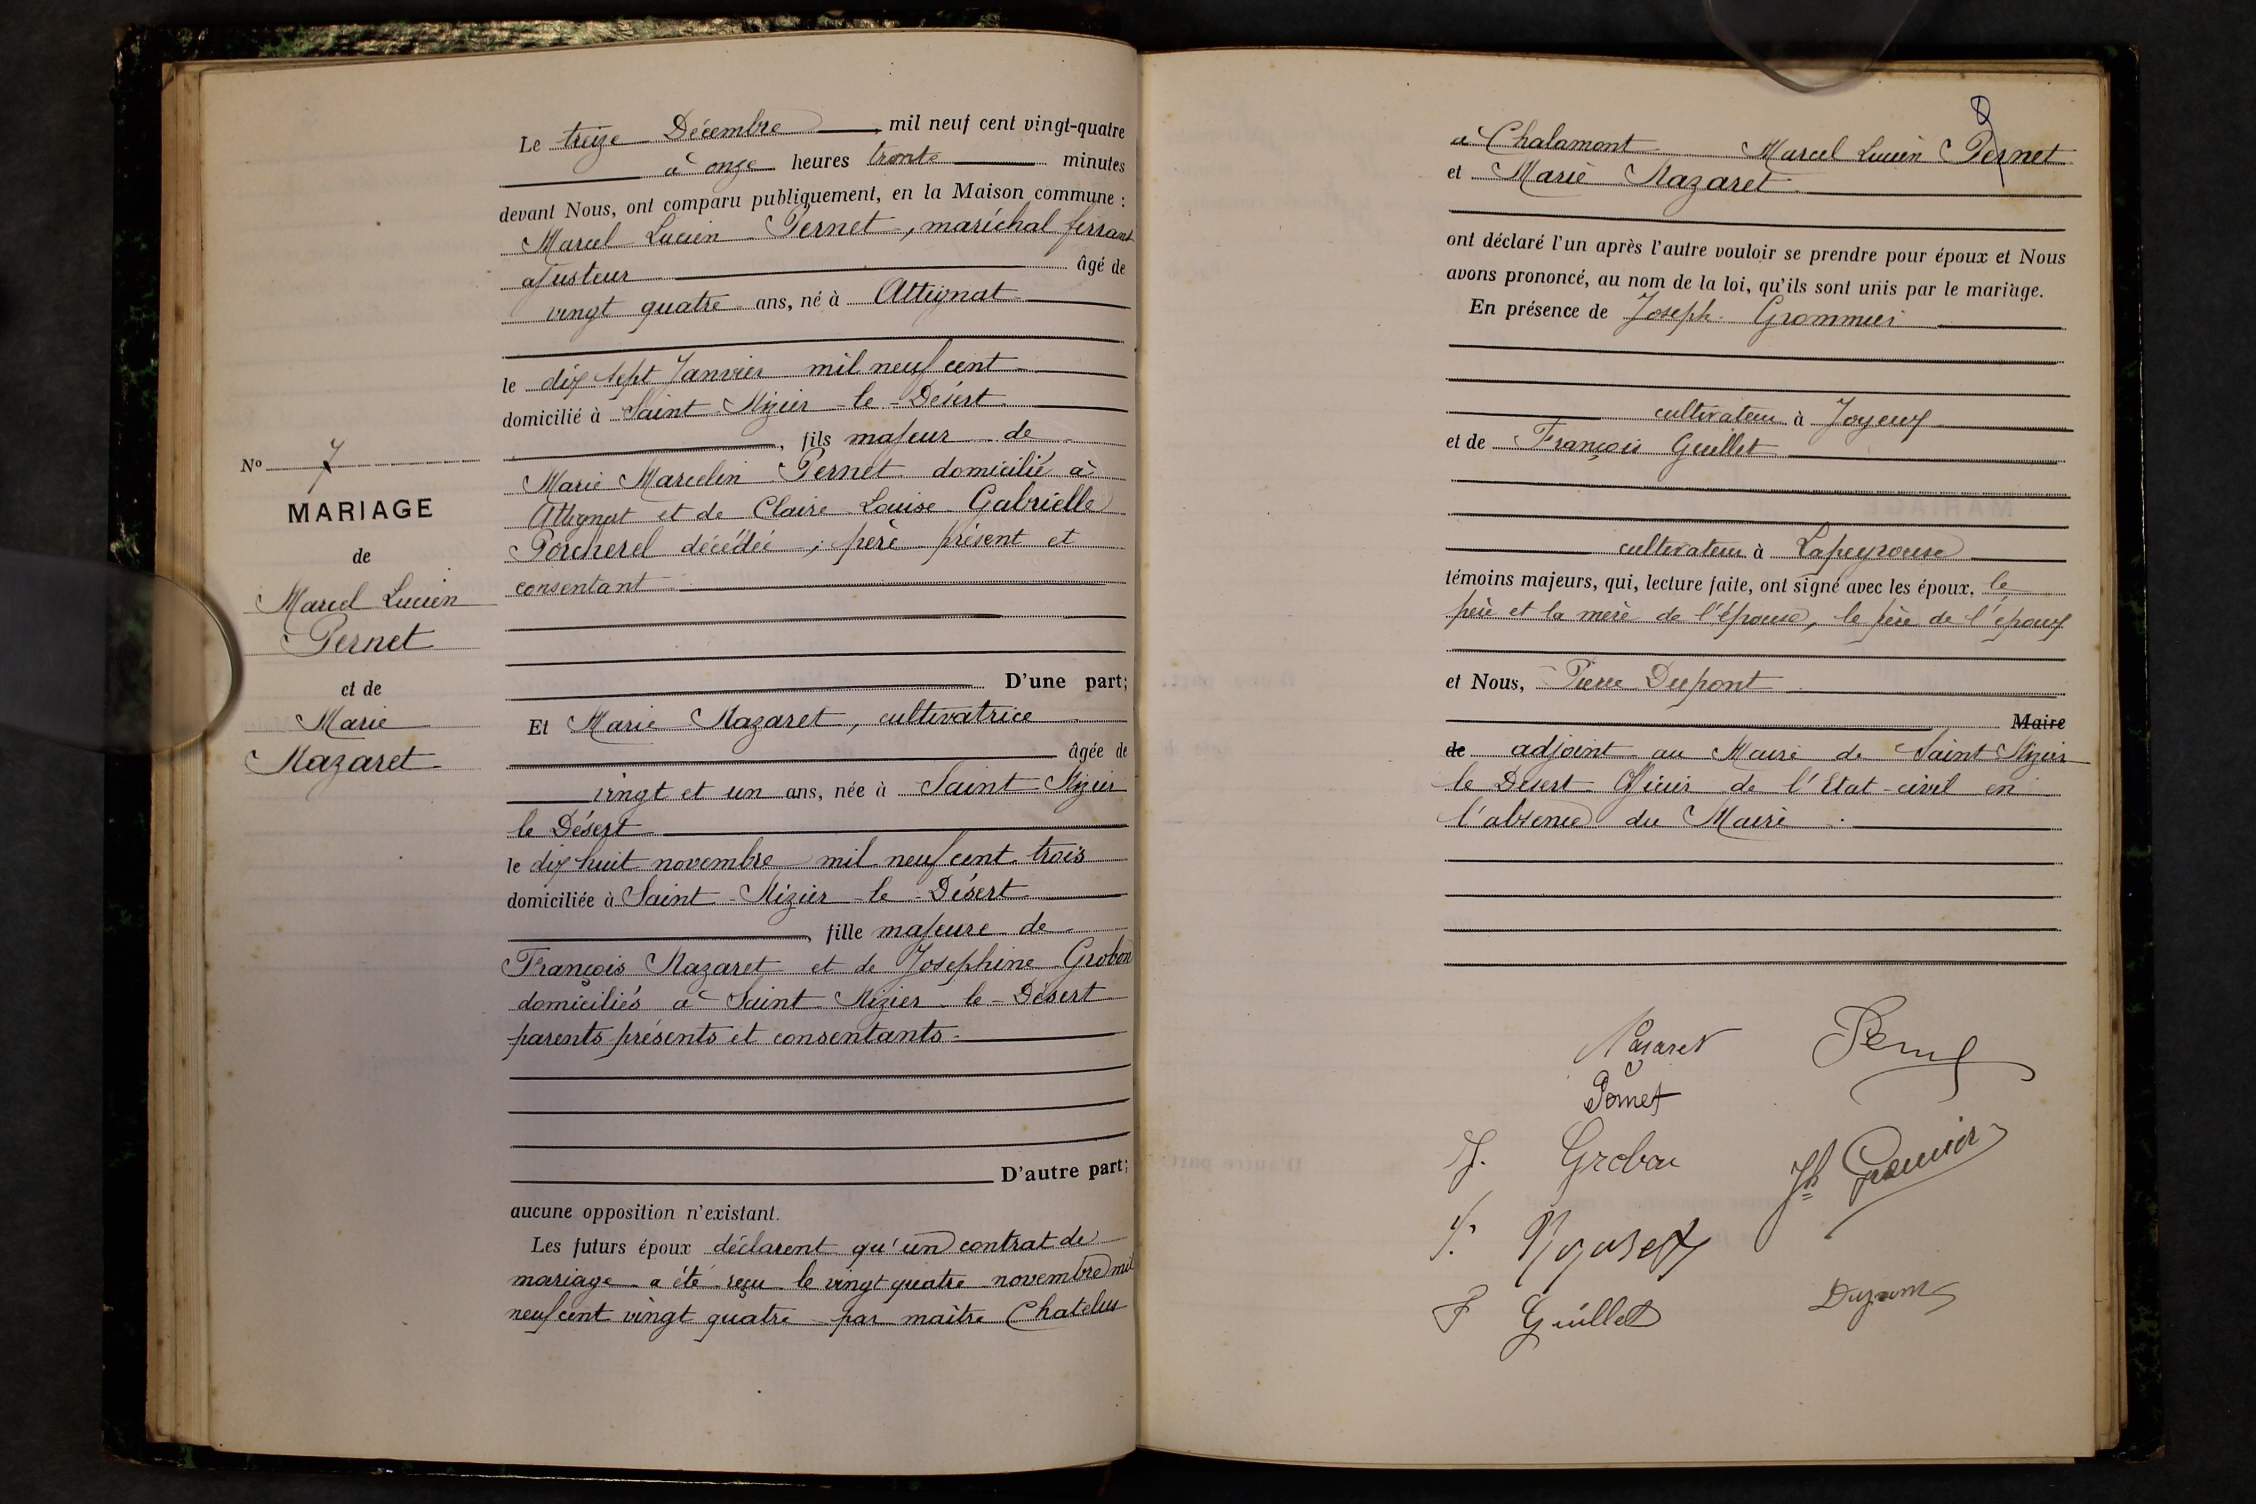 Le treize Décembre mil neuf cent vingt-quatre
à onze heures trente minutes
devant Nous, ont comparu publiquement, en la Maison commune :
Marcel Lucien Pernet, maréchal ferrant
ajusteur âgé de
vingt quatre ans, né à Attignat
le dix sept Janvier mil neuf cent
domicilié à Saint-Nizier-le-Désert
, fils majeur de
Marie Marcelin Pernet domicilié à
Attignat et de Claire Louise Gabrielle
Porcherel décédée ; père présent et
consentant
D'une part;
Et Marie Nazaret, cultivatrice
âgée de
vingt et un ans, née à Saint Nizier
le Désert
le dix huit novembre mil neuf cent trois
domiciliée à Saint-Nizier-le-Désert
, fille majeure de
François Nazaret et de Joséphine Grobon
domiciliés à Saint Nizier-le-Désert
parents présents et consentants
D'autre part;
aucune opposition n'existant.
Les futurs époux déclarent qu'un contrat de
mariage a été reçu le vingt quatre novembre mil
neuf cent vingt quatre par maître Chatelus
No 7
MARIAGE
de
Marcel Lucien
Pernet
et de
Marie
Nazaret
à Chalamont Marcel Lucien Pernet
et Marie Nazaret
ont déclaré l'un après l'autre vouloir se prendre pour époux et Nous
avons prononcé, au nom de la loi, qu'ils sont unis par le mariage.
En présence de Joseph
cultivateur à Joyeux
et de François Guillet
cultivateur à Lapeyrouse
témoins majeurs, qui, lecture faite, ont signé avec les époux, le
père et la mère de l'épouse, le père de l'époux
et Nous, Pierre Dupont
Maire
de adjoint au Maire de Saint Nizier
le Désert Officier de l'Etat-civil en
l'absence du Maire.
Nazaret
Pernet
J. Grobon
F. Guillet
Dupont